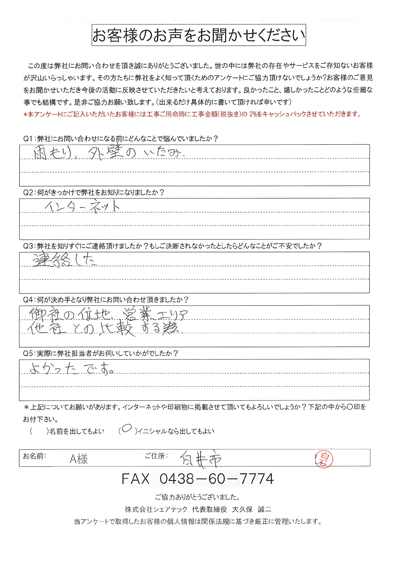 お客様のお声をお聞かせください
この度は弊社にお問い合わせを頂き誠にありがとうございました。世の中には弊社の存在やサービスをご存知ないお客様
が沢山いらっしゃいます。その方たちに弊社をよく知って頂くためのアンケートにご協力頂けないでしょうか?お客様のご意見
をお聞かせいただき今後の活動に反映させていただきたいと考えております。良かったこと、嬉しかったことどのような些細な
事でも結構です。是非ご協力お願い致します。(出来るだけ具体的に書いて頂ければ幸いです)
*本アンケートにご記入いただいたお客様には工事ご用命時に工事金額(税抜き)の2%をキャッシュバックさせていただきます。
Q1:弊社にお問い合わせになる前にどんなことで悩んでいましたか?
雨もり、外壁のいたみ、
Q2:何がきっかけで弊社をお知りになりましたか?
インターネット
Q3:弊社を知りすぐにご連絡頂けましたか?もしご決断されなかったとしたらどんなことがご不安でしたか?
連絡した
Q4:何が決め手となり弊社にお問い合わせ頂きましたか?
御社の位地、営業エリア
他社との比較する為
Q5:実際に弊社担当者がお伺いしていかがでしたか?
よかったです。
*上記についてお願いがあります。インターネットや印刷物に掲載させて頂いてもよろしいでしょうか?下記の中から〇印を
お付下さい。
( )名前を出してもよい (〇)イニシャルなら出してもよい
お名前: A様 ご住所: 白井市
FAX 0438-60-7774
ご協力ありがとうございました。
株式会社シェアテック 代表取締役 大久保 誠二
当アンケートで取得したお客様の個人情報は関係法規に基づき厳正に管理いたします。